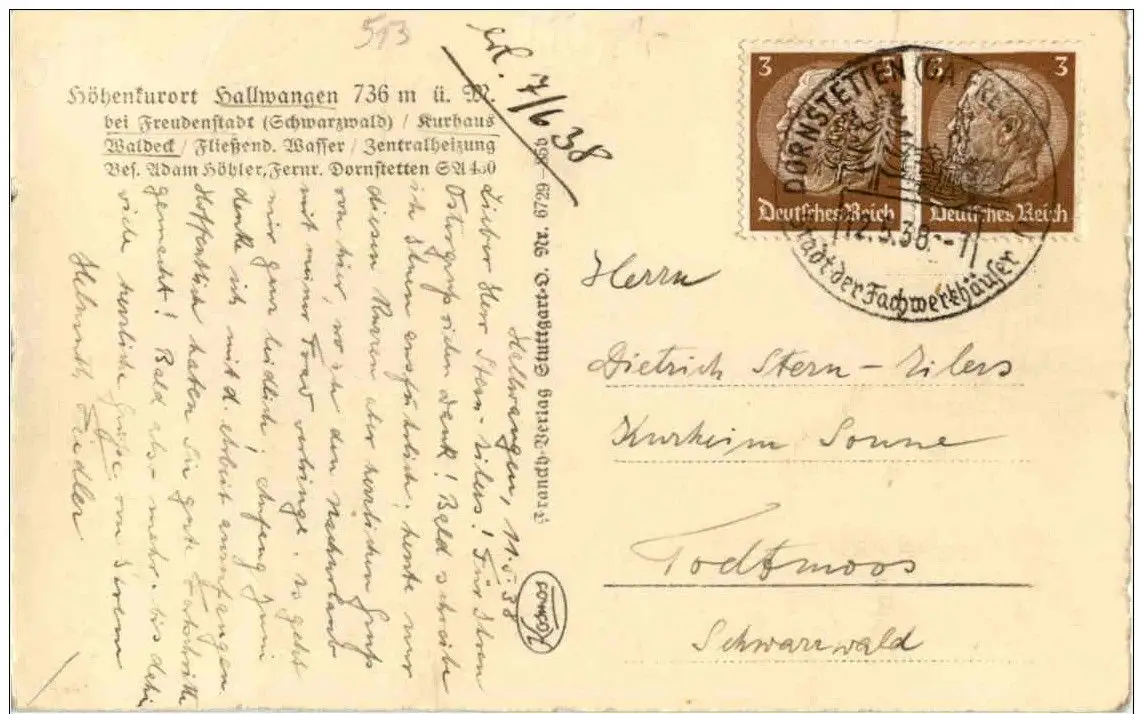 513
1,-
erl. 7/6 38
Höhenkurort Hallwangen 736 m ü. M.
bei Freudenstadt (Schwarzwald) / Kurhaus
Waldeck / Fließend. Wasser / Zentralheizung
Bes. Adam Höhler, Fernr. Dornstetten SA 430
Hallwangen, 11.5.38
Lieber Herr Stern-Eilers! Für Ihren
Ostergruß vielen Dank! Bald schreibe
ich Ihnen ausführlich; heute nur
diesen kurzen aber herzlichen Gruß
von hier, wo ich den Nachurlaub
mit meiner Frau verbringe. Es geht
mir ganz leidlich; Anfang Juni
denke ich mit d. Arbeit anzufangen
Hoffentlich haben Sie gute Fortschritte
gemacht! Bald also mehr. bis dahin
viele herzliche Grüße von Ihrem
Helmuth Fiedler
Franckh-Verlag Stuttgart-O. Nr. 6729
3 3
3
Deutsches Reich
Deutsches Reich
DORNSTETTEN
12.5.38.-7
Stadt der Fachwerkhäuser
Herrn
Dietrich Stern-Eilers
Kurheim Sonne
Todtmoos
Schwarzwald